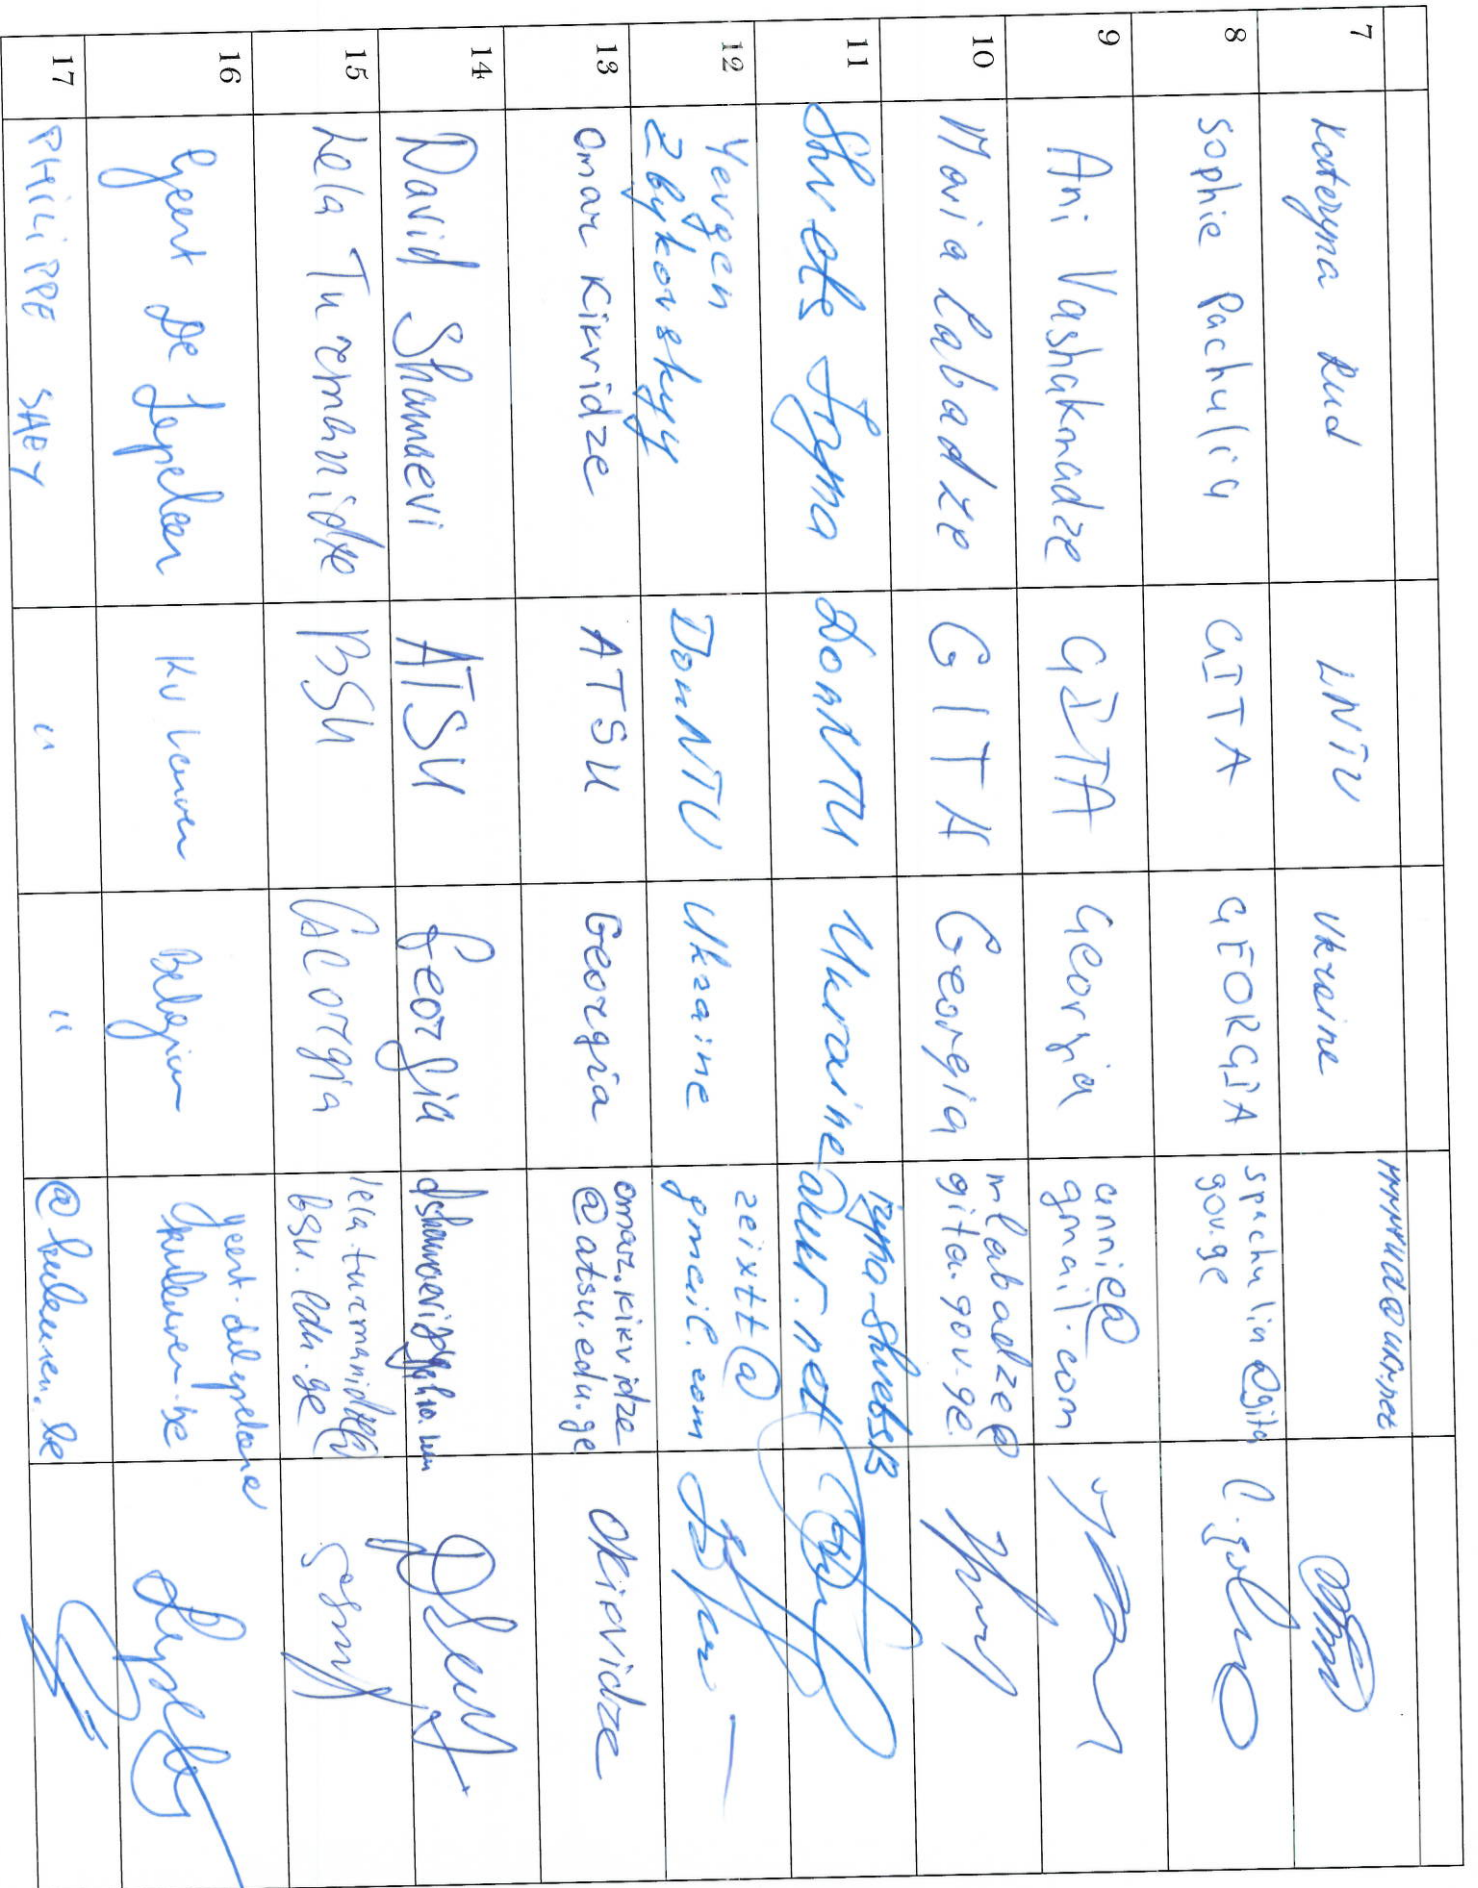 7 Kateryna Rud LNTU Ukraine
8 Sophie Pachulia GITA GEORGIA spachulia@gita
gov.ge
9 Ani Vashakmadze GITA Georgia annie@
gmail.com
10 Maria Labadze GITA Georgia mlabadze@
gita.gov.ge
11 Shvets Iryna DonNTU Ukraine
@ukr.net
12 Yevgen
Zbykovskyy DonNTU Ukraine zeixtt@
gmail.com
13 Omar Kikvidze ATSU Georgia omar.kikvidze
@atsu.edu.ge okikvidze
14 David Shamaevi ATSU Georgia
15 Lela Turmanidze BSU Georgia lela.turmanidze@
bsu.edu.ge
16 Geert De Lepeleer KU Leuven Belgium
kuleuven.be
17 PHILIPPE SAEY " " @kuleuven.be